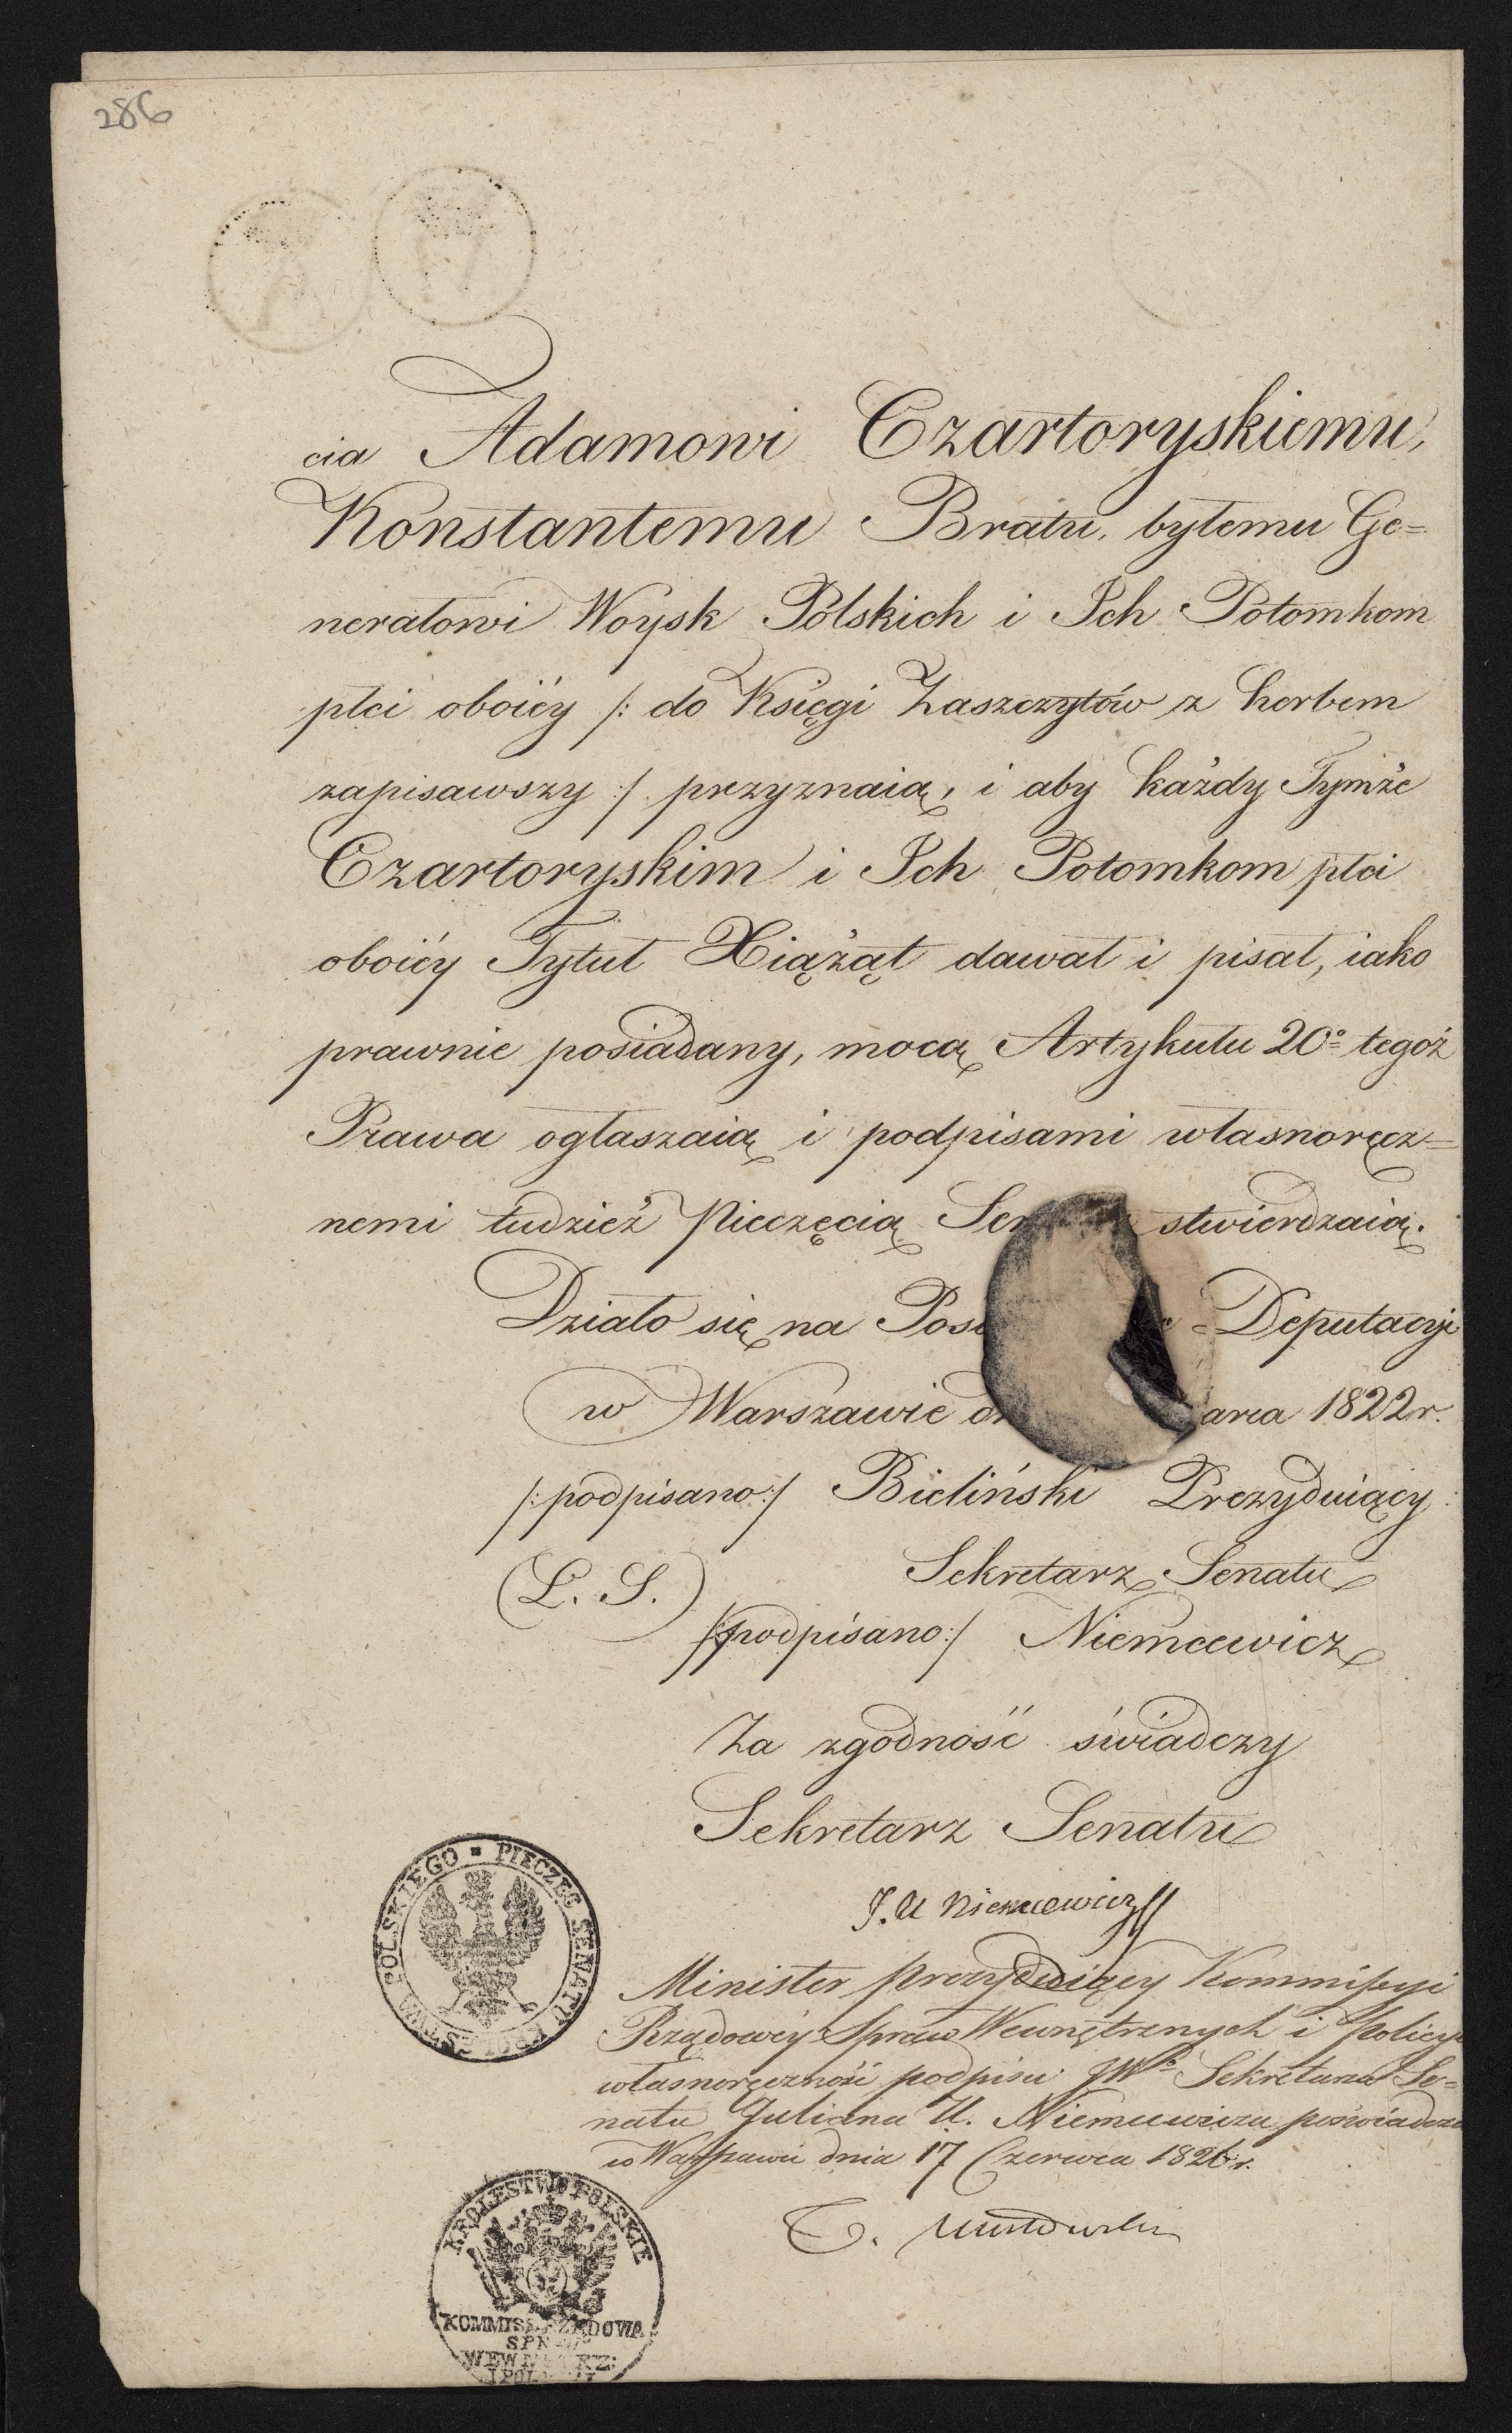 286
cia Adamowi Czartoryskiemu,
Konstantemu Bratu, byłemu Ge=
nerałowi Woysk Polskich i Ich Potomkom
płci oboiéy /: do Księgi Zaszczytów z herbem
zapisawszy :/ przyznaią, i aby każdy Tymże
Czartoryskim i Ich Potomkom płci
oboiéy Tytuł Xiążąt dawał i pisał, iako
prawnie posiadany, mocą Artykułu 20º tegoż
Prawa ogłaszaią i podpisami własnoręcz=
nemi tudzież Pieczęcią stwierdzaią.
Działo się na Deputacyi
w Warszawie 1822 r.
/:podpisano:/ Bieliński Prezyduiący
Sekretarz Senatu
(L. S.)
/:podpisano:/ Niemcewicz
Za zgodność świadczy
Sekretarz Senatu
J. U Niemcewicz
PIECZĘĆ SENATU KRÓLESTWA POLSKIEGO
Minister prezyduiący Kommissyi
Rządowéy Spraw Wewnętrznych i Policyi
własnoręczność podpisu JWº Sekretarza Se=
natu Juliana U. Niemcewicza poświadcza
w Warszawie dnia 17 Czerwca 1826 r.
T. Mostowski
KRÓLESTWO POLSKIE
KOMMISS. RZĄDOWA
SPRAW
WEWNĘTRZ:
I POLICYI